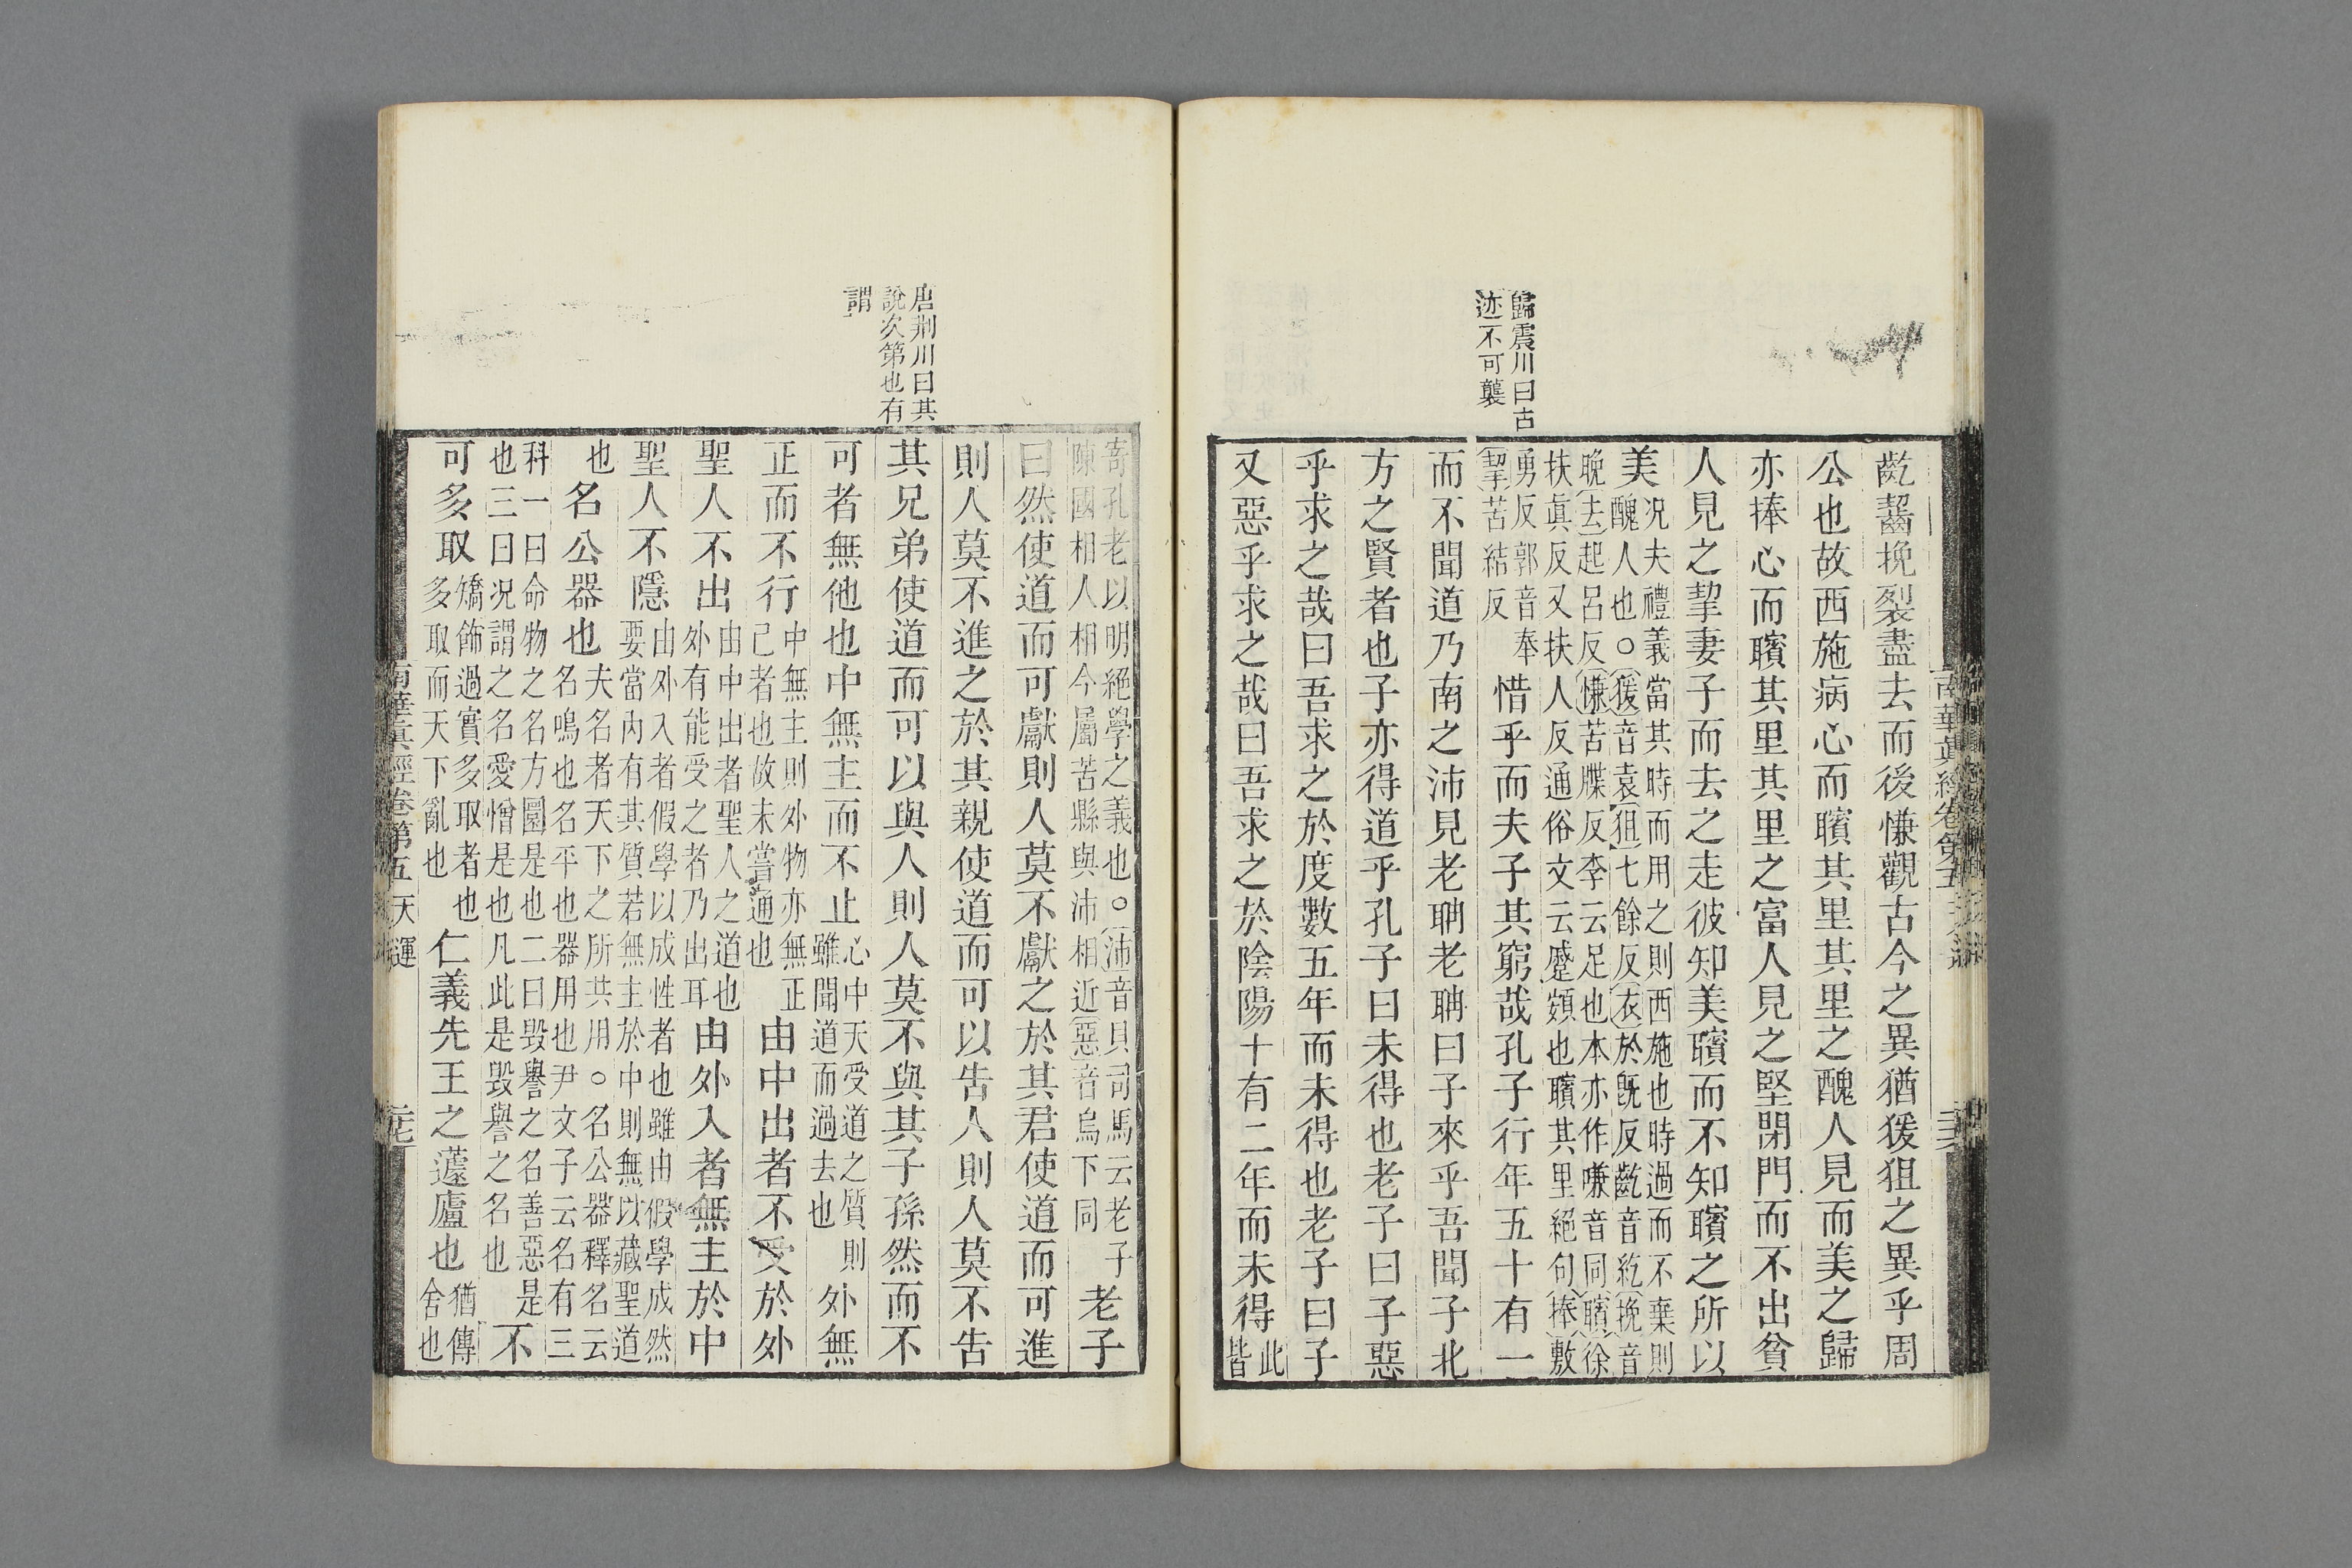 歸震川曰古
迹不可襲
齕齧挽裂盡去而後慊觀古今之異猶猨狙之異乎周
公也故西施病心而矉其里其里之醜人見而美之歸
亦捧心而矉其里其里之富人見之堅閉門而不出貧
人見之挈妻子而去之走彼知美矉而不知矉之所以
美
况夫禮義當其時而用之則西施也時過而不棄則
醜人也○猨音袁狙七餘反衣於既反齕音紇挽音
晚去起呂反慊苦牒反李云足也本亦作嗛音同矉徐
扶真反又扶人反通俗文云蹙頞也矉其里絕句捧敷
勇反郭音奉
挈苦結反
惜乎而夫子其窮哉孔子行年五十有一
而不聞道乃南之沛見老聃老聃曰子來乎吾聞子北
方之賢者也子亦得道乎孔子曰未得也老子曰子惡
乎求之哉曰吾求之於度數五年而未得也老子曰子
又惡乎求之哉曰吾求之於陰陽十有二年而未得
此
皆
南華真經卷第五
唐荊川曰其
說次第也有
謂
寄孔老以明絕學之義也○沛音貝司馬云老子
陳國相人相今屬苦縣與沛相近惡音烏下同
老子
曰然使道而可獻則人莫不獻之於其君使道而可進
則人莫不進之於其親使道而可以告人則人莫不告
其兄弟使道而可以與人則人莫不與其子孫然而不
可者無他也中無主而不止
心中天受道之質則
雖聞道而過去也
外無
正而不行
中無主則外物亦無正
己者也故未嘗通也
由中出者不受於外
聖人不出
由中出者聖人之道也
外有能受之者乃出耳
由外入者無主於中
聖人不隱
由外入者假學以成性者也雖由假學成然
要當內有其質若無主於中則無以藏聖道
也
名公器也
夫名者天下之所共用○名公器釋名云
名鳴也名平也器用也尹文子云名有三
科一曰命物之名方圓是也二曰毀譽之名善惡是
也三曰況謂之名愛憎是也凡此是毀譽之名也
不
可多取
矯飾過實多取者也
多取而天下亂也
仁義先王之蘧廬也
猶傳
舍也
南華真經卷第五
天運
二七